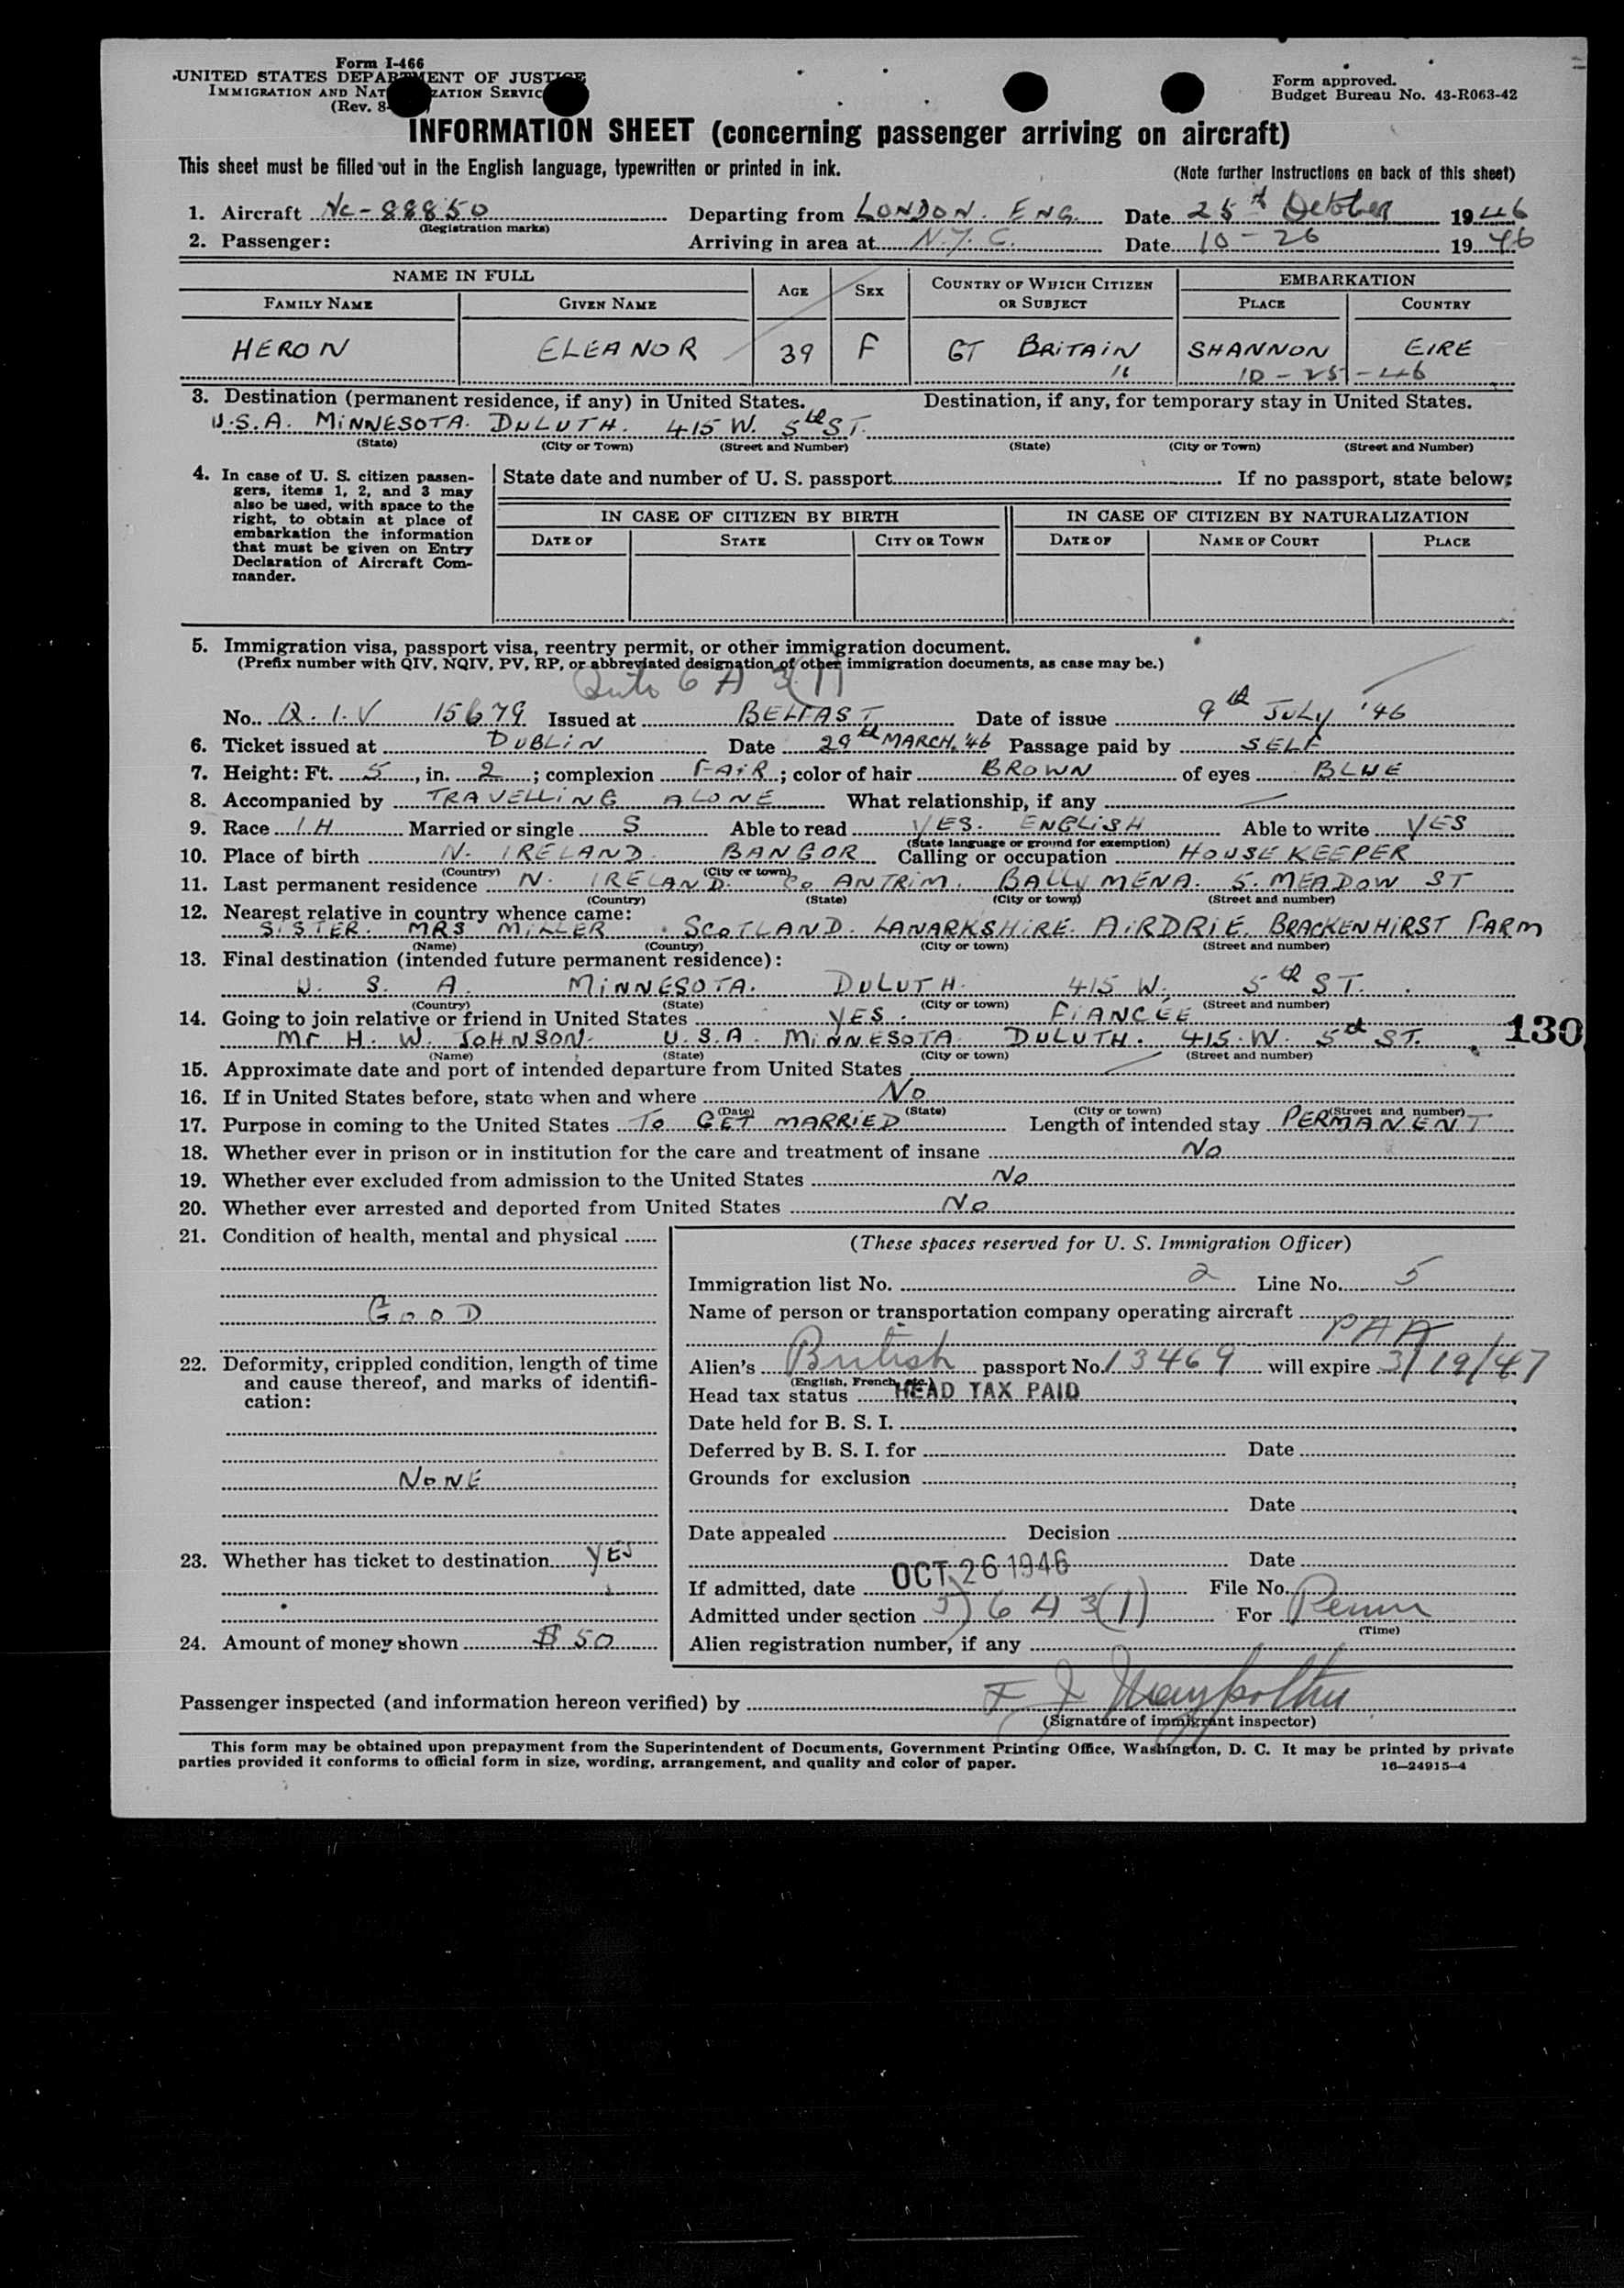 Form I-466
UNITED STATES DEPARTMENT OF JUSTICE
IMMIGRATION AND NAT ZATION SERVIC
(Rev. 8-
Form approved.
Budget Bureau No. 43-R063-42
INFORMATION SHEET (concerning passenger arriving on aircraft)
This sheet must be filled out in the English language, typewritten or printed in ink. (Note further instructions on back of this sheet)
1. Aircraft NC-88850 Departing from LONDON. ENG. Date 25th October 1946
(Registration marks)
2. Passenger: Arriving in area at N.Y.C. Date 10-26 1946
NAME IN FULL AGE SEX COUNTRY OF WHICH CITIZEN OR SUBJECT EMBARKATION
FAMILY NAME GIVEN NAME PLACE COUNTRY
HERON ELEANOR 39 F GT BRITAIN SHANNON EIRE
10-25-46
3. Destination (permanent residence, if any) in United States. Destination, if any, for temporary stay in United States.
U.S.A. MINNESOTA. DULUTH. 415 W. 5th ST.
(State) (City or Town) (Street and Number) (State) (City or Town) (Street and Number)
4. In case of U. S. citizen passen-
gers, items 1, 2, and 3 may
also be used, with space to the
right, to obtain at place of
embarkation the information
that must be given on Entry
Declaration of Aircraft Com-
mander.
State date and number of U. S. passport If no passport, state below:
IN CASE OF CITIZEN BY BIRTH IN CASE OF CITIZEN BY NATURALIZATION
DATE OF STATE CITY OR TOWN DATE OF NAME OF COURT PLACE
5. Immigration visa, passport visa, reentry permit, or other immigration document.
(Prefix number with QIV, NQIV, PV, RP, or abbreviated designation of other immigration documents, as case may be.)
6 A 3(1)
No. Q.I.V 15679 Issued at BELFAST Date of issue 9th JULY '46
6. Ticket issued at DUBLIN Date 29th MARCH. '46 Passage paid by SELF
7. Height: Ft. 5, in. 2; complexion FAIR; color of hair BROWN of eyes BLUE
8. Accompanied by TRAVELLING ALONE What relationship, if any
9. Race IH Married or single S Able to read YES. ENGLISH Able to write YES
(State language or ground for exemption)
10. Place of birth N. IRELAND. BANGOR Calling or occupation HOUSEKEEPER
(Country) (City or town)
11. Last permanent residence N. IRELAND. Co ANTRIM. BALLYMENA. 5. MEADOW ST
(Country) (State) (City or town) (Street and number)
12. Nearest relative in country whence came:
SISTER. MRS MILLER. SCOTLAND. LANARKSHIRE. AIRDRIE. BRACKENHIRST FARM
(Name) (Country) (City or town) (Street and number)
13. Final destination (intended future permanent residence):
U. S. A. MINNESOTA. DULUTH. 415 W. 5th ST.
(Country) (State) (City or town) (Street and number)
14. Going to join relative or friend in United States YES. FIANCÉE
Mr H. W. JOHNSON. U.S.A. MINNESOTA DULUTH. 415. W. 5th ST.
130
(Name) (State) (City or town) (Street and number)
15. Approximate date and port of intended departure from United States
16. If in United States before, state when and where No
(Date) (State) (City or town) (Street and number)
17. Purpose in coming to the United States To GET MARRIED Length of intended stay PERMANENT
18. Whether ever in prison or in institution for the care and treatment of insane No
19. Whether ever excluded from admission to the United States No
20. Whether ever arrested and deported from United States No
21. Condition of health, mental and physical
GOOD
22. Deformity, crippled condition, length of time
and cause thereof, and marks of identifi-
cation:
NONE
23. Whether has ticket to destination YES
24. Amount of money shown $50
(These spaces reserved for U. S. Immigration Officer)
Immigration list No. 2 Line No. 5
Name of person or transportation company operating aircraft
PAA
Alien's British passport No. 13469 will expire 3/19/47
(English, French, etc.)
Head tax status HEAD TAX PAID
Date held for B. S. I.
Deferred by B. S. I. for Date
Grounds for exclusion
Date
Date appealed Decision
Date
If admitted, date OCT 26 1946 File No.
Admitted under section 3) 6 A 3(1) For Perm
(Time)
Alien registration number, if any
Passenger inspected (and information hereon verified) by F J
(Signature of immigrant inspector)
This form may be obtained upon prepayment from the Superintendent of Documents, Government Printing Office, Washington, D. C. It may be printed by private
parties provided it conforms to official form in size, wording, arrangement, and quality and color of paper. 16—24915-4